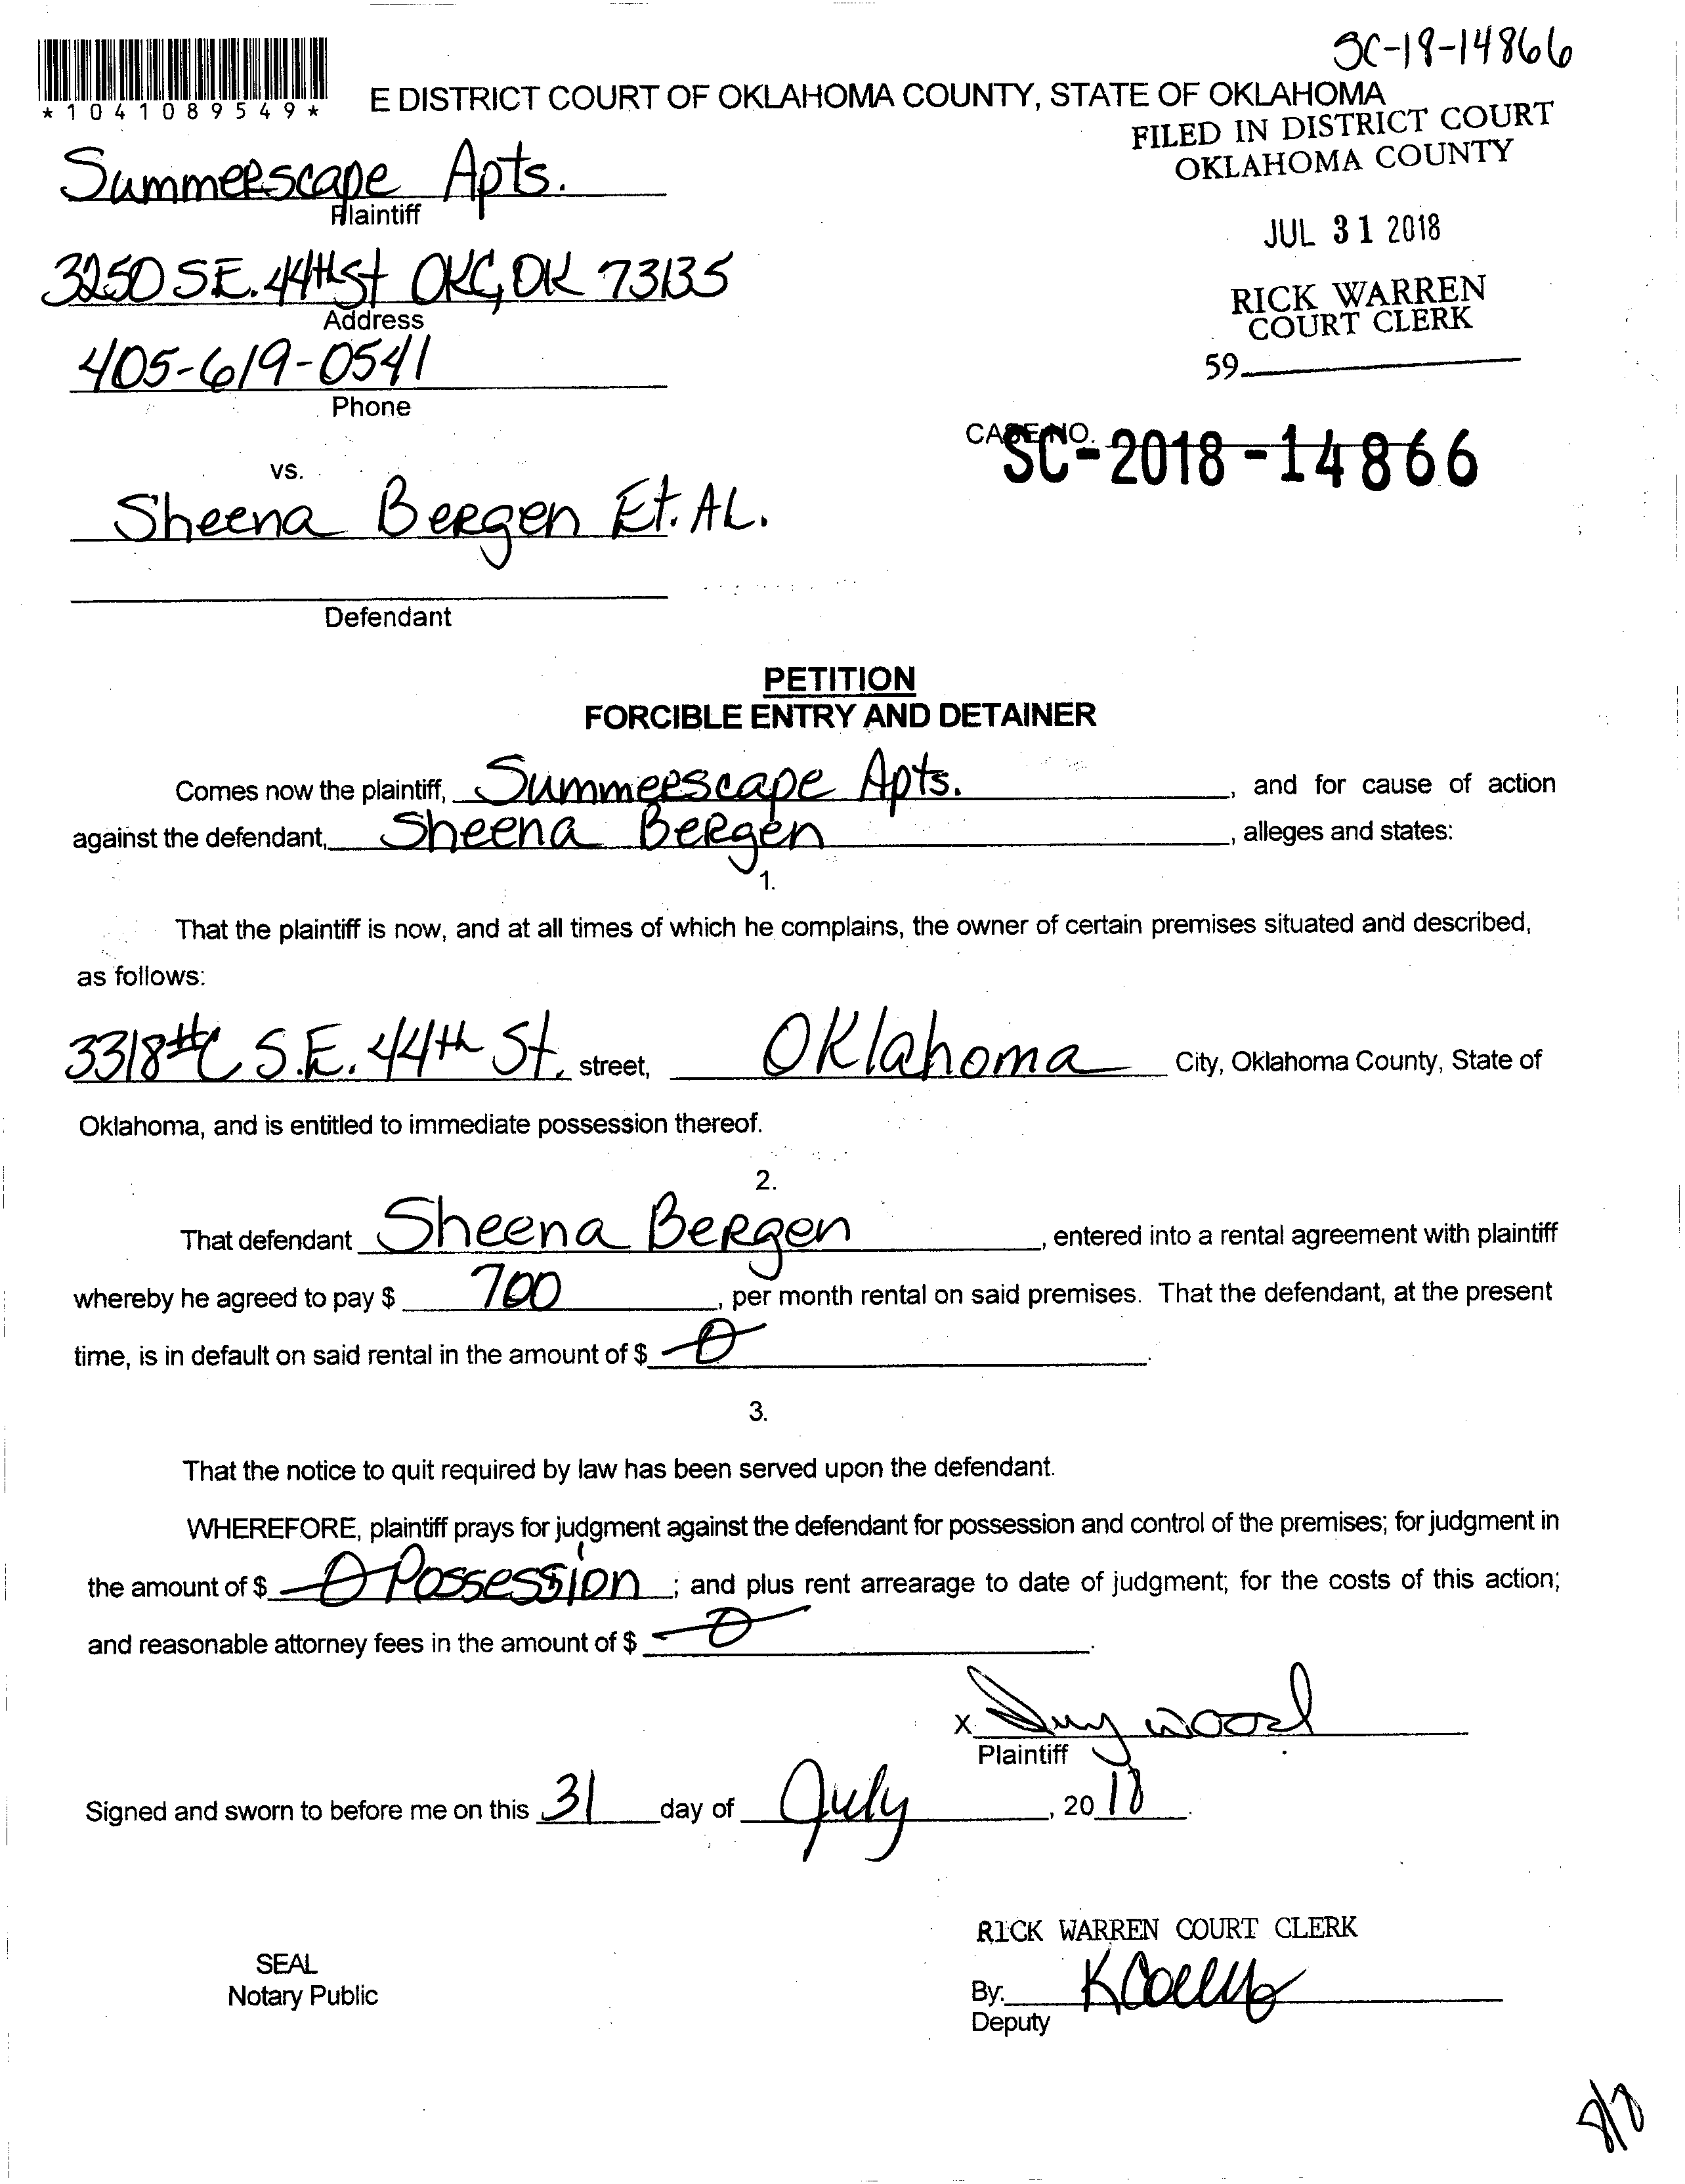 SC-18-14866
*1041089549*
E DISTRICT COURT OF OKLAHOMA COUNTY, STATE OF OKLAHOMA
FILED IN DISTRICT COURT
OKLAHOMA COUNTY
Summerscape Apts.
Plaintiff
JUL 31 2018
3250 S.E. 44th St OKC, OK 73135
Address
RICK WARREN
COURT CLERK
405-619-0541
59
Phone
CASE NO.
SC-2018-14866
vs.
Sheena Bergen Et. AL.
Defendant
PETITION
FORCIBLE ENTRY AND DETAINER
Comes now the plaintiff, Summerscape Apts. , and for cause of action
against the defendant, Sheena Bergen , alleges and states:
1.
That the plaintiff is now, and at all times of which he complains, the owner of certain premises situated and described,
as follows:
3318#C S.E. 44th St. street, Oklahoma City, Oklahoma County, State of
Oklahoma, and is entitled to immediate possession thereof.
2.
That defendant Sheena Bergen , entered into a rental agreement with plaintiff
whereby he agreed to pay $ 700 , per month rental on said premises. That the defendant, at the present
time, is in default on said rental in the amount of $ 0 .
3.
That the notice to quit required by law has been served upon the defendant.
WHEREFORE, plaintiff prays for judgment against the defendant for possession and control of the premises; for judgment in
the amount of $ 0 Possession ; and plus rent arrearage to date of judgment; for the costs of this action;
and reasonable attorney fees in the amount of $ 0 .
X wood
Plaintiff
Signed and sworn to before me on this 31 day of July , 20 18 .
RICK WARREN COURT CLERK
SEAL
Notary Public
By:
Deputy